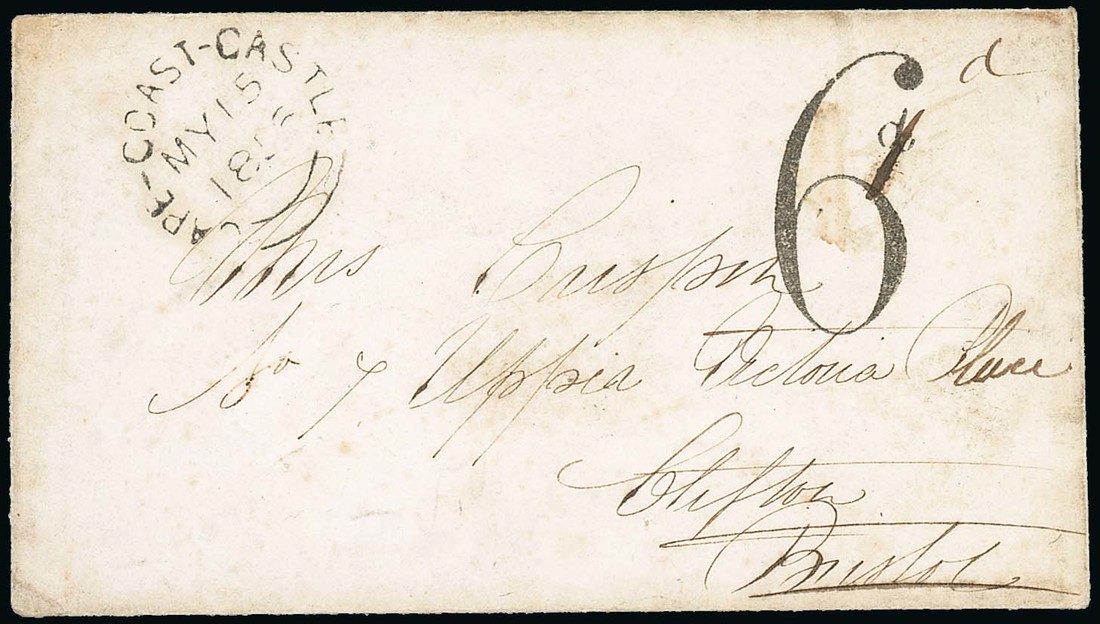 CAPE-COAST-CASTLE
MY 15
6 d
Mrs Crispin
No 7 Upper Victoria Place
Clifton
Bristol